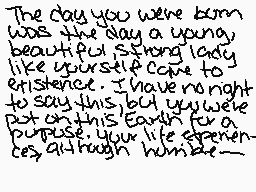 The day you were born
was the day a young,
beautiful strong lady
like yourself came to
existence. I have no right
to say this, but you were
put on this Earth for a
purpose. your life experien-
ces, although humble—